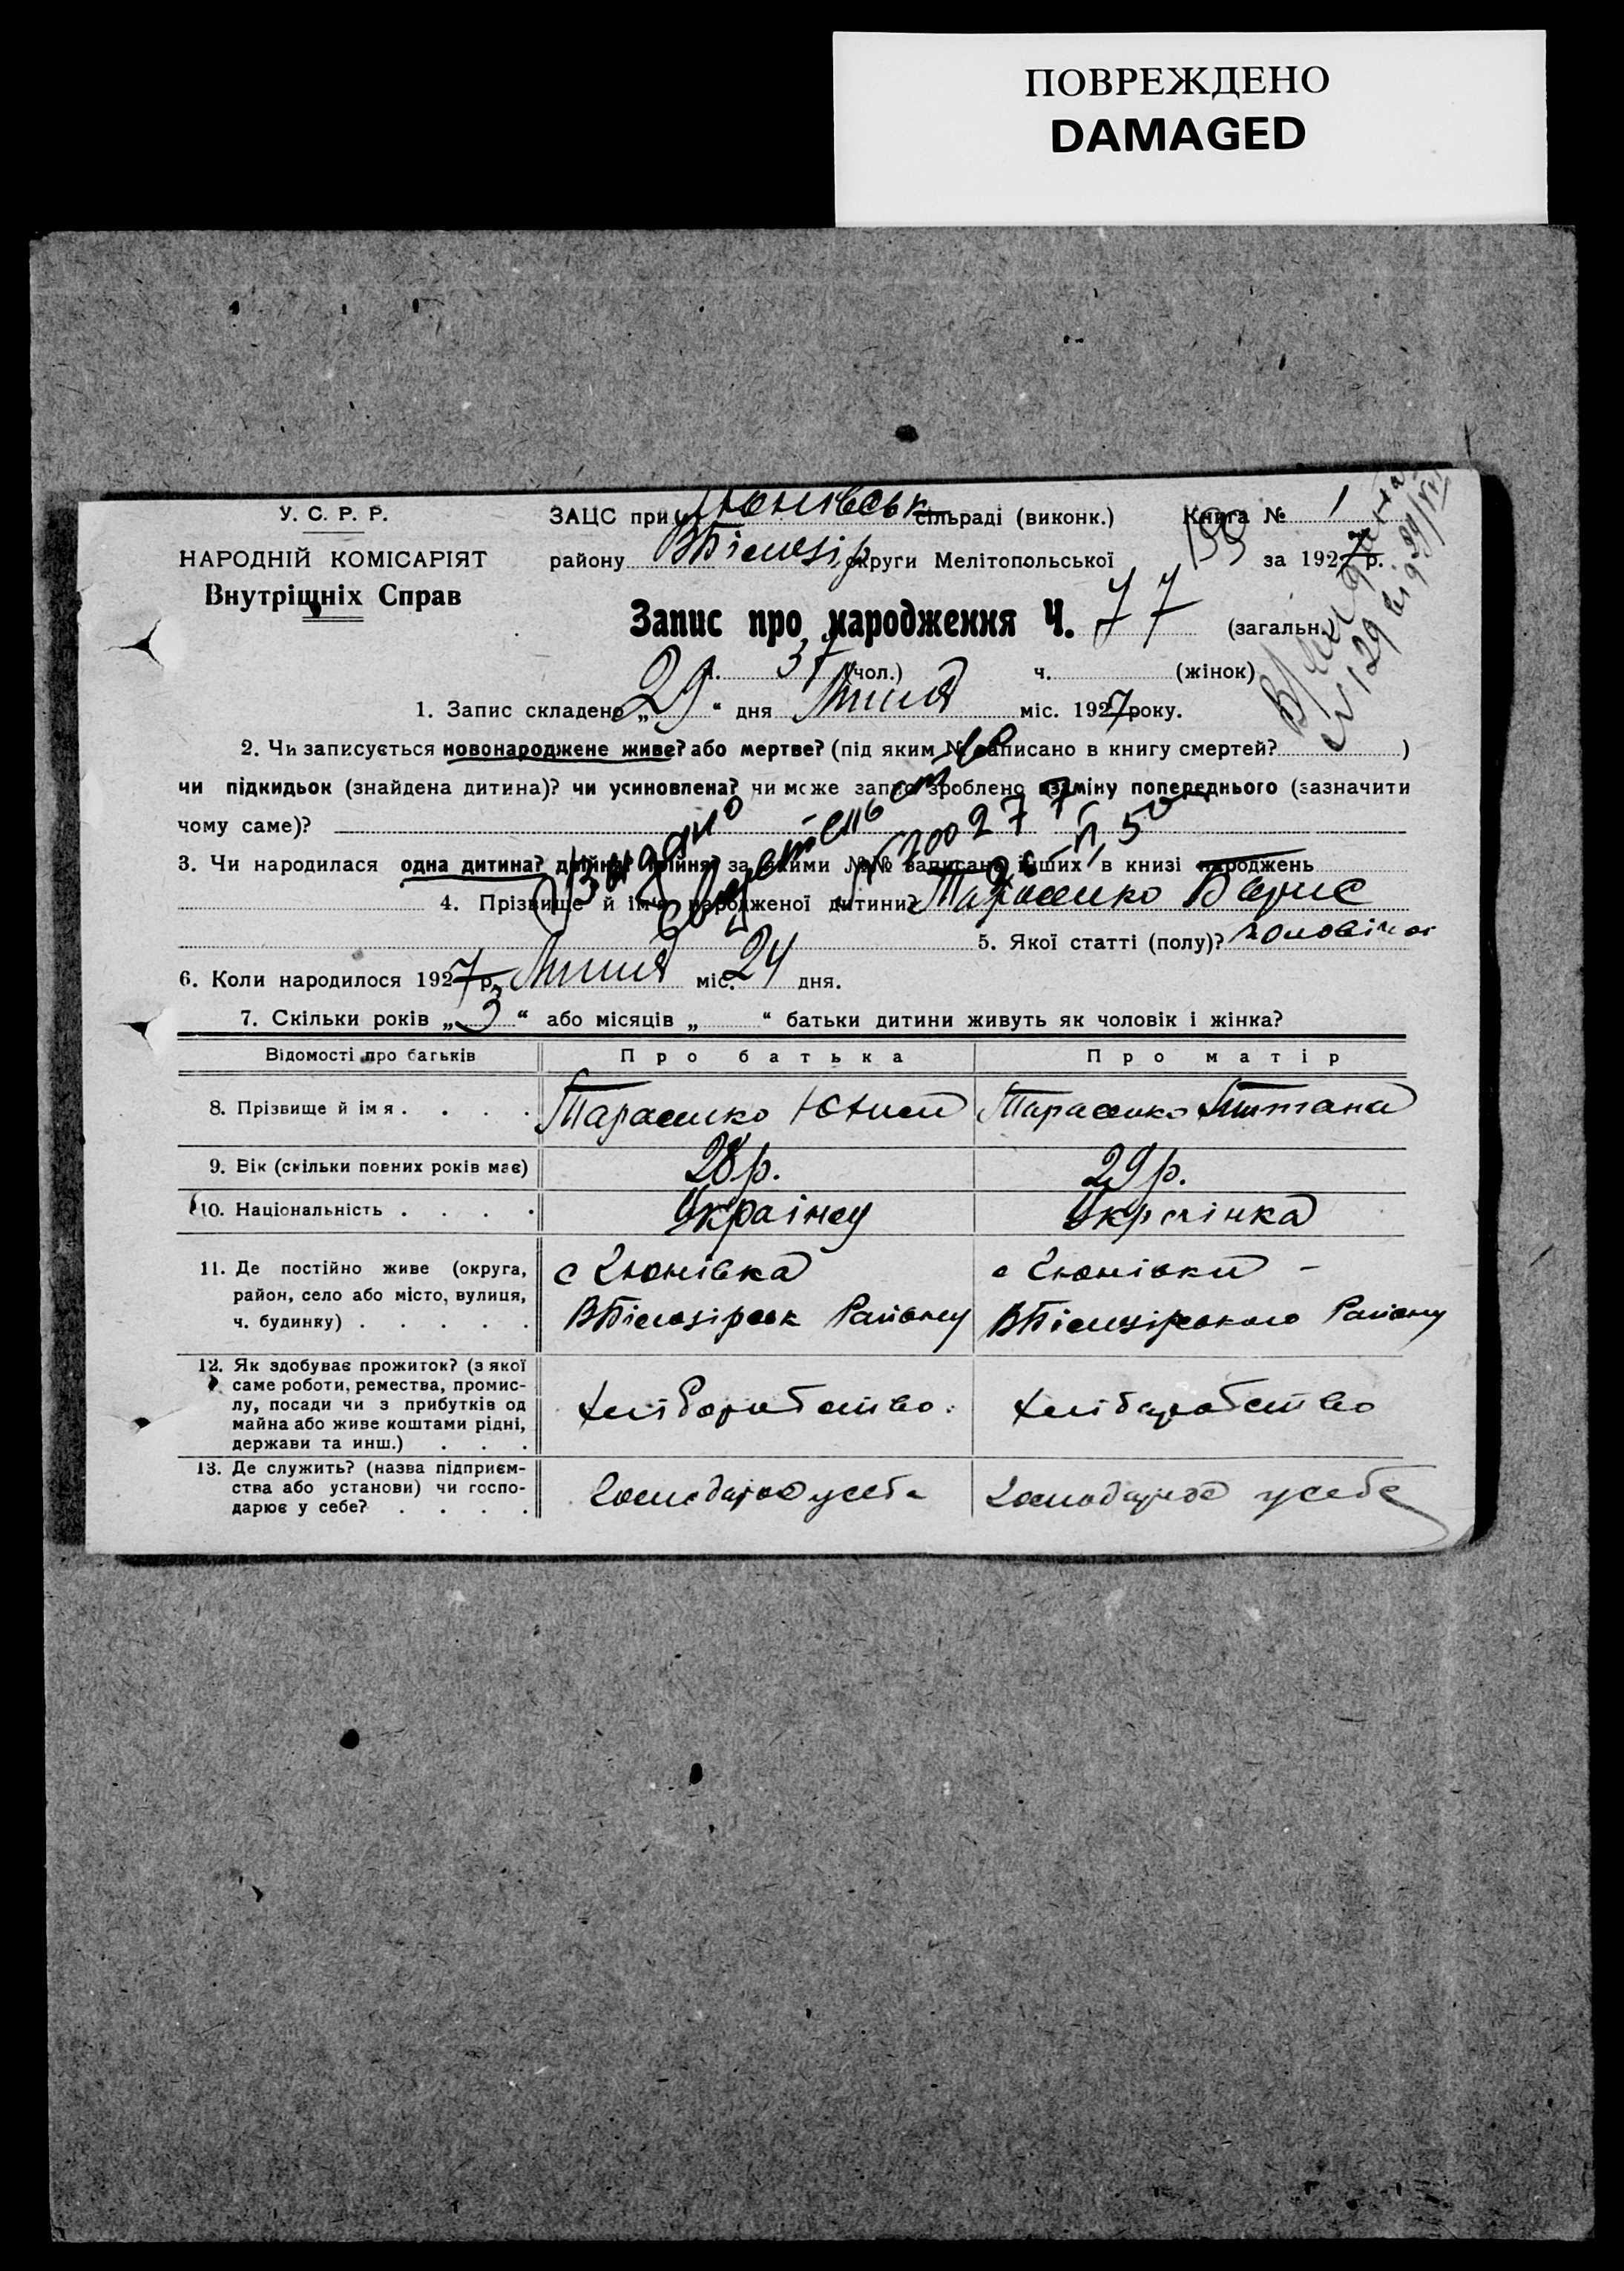 ПОВРЕЖДЕНО
DAMAGED
У. С. Р. Р.
НАРОДНІЙ КОМІСАРІЯТ
Внутрішніх Справ
ЗАЦС при сільраді (виконк.) Книга № 1
району ВБілозір округи Мелітопольської за 1927 р.
Запис про народження Ч. 77 (загальн.)
ч. 37 (чол.) ч. (жінок)
1. Запис складено „29“ дня Липня міс. 1927 року.
2. Чи записується новонароджене живе? або мертве? (під яким № записано в книгу смертей? )
чи підкидьок (знайдена дитина)? чи усиновлена? чи може запис зроблено взаміну попереднього (зазначити
чому саме)?
3. Чи народилася одна дитина? двійня? трійня? за якими №№ записана інших в книзі народжень
4. Прізвище й ім'я народженої дитини? Тарасенко Борис
5. Якої статті (полу)? чоловічої
6. Коли народилося 1927 р. Липня міс. 24 дня.
7. Скільки років „3“ або місяців „ “ батьки дитини живуть як чоловік і жінка?
Відомості про батьків Про батька Про матір
8. Прізвище й імя . . . . Тарасенко Тарасенко
9. Вік (скільки повних років має) 28 р. 29 р.
10. Національність . . . . Українец Українка
11. Де постійно живе (округа,
район, село або місто, вулиця,
ч. будинку) . . . . .
с
ВБілозірськ Району
с
ВБілозірського Району
12. Як здобуває прожиток? (з якої
саме роботи, ремества, промис-
лу, посади чи з прибутків од
майна або живе коштами рідні,
держави та инш.) . . .
хліборобство. хліборобство
13. Де служить? (назва підприєм-
ства або установи) чи госпо-
дарює у себе? . . . .
Господарює у себе Господарює у себе